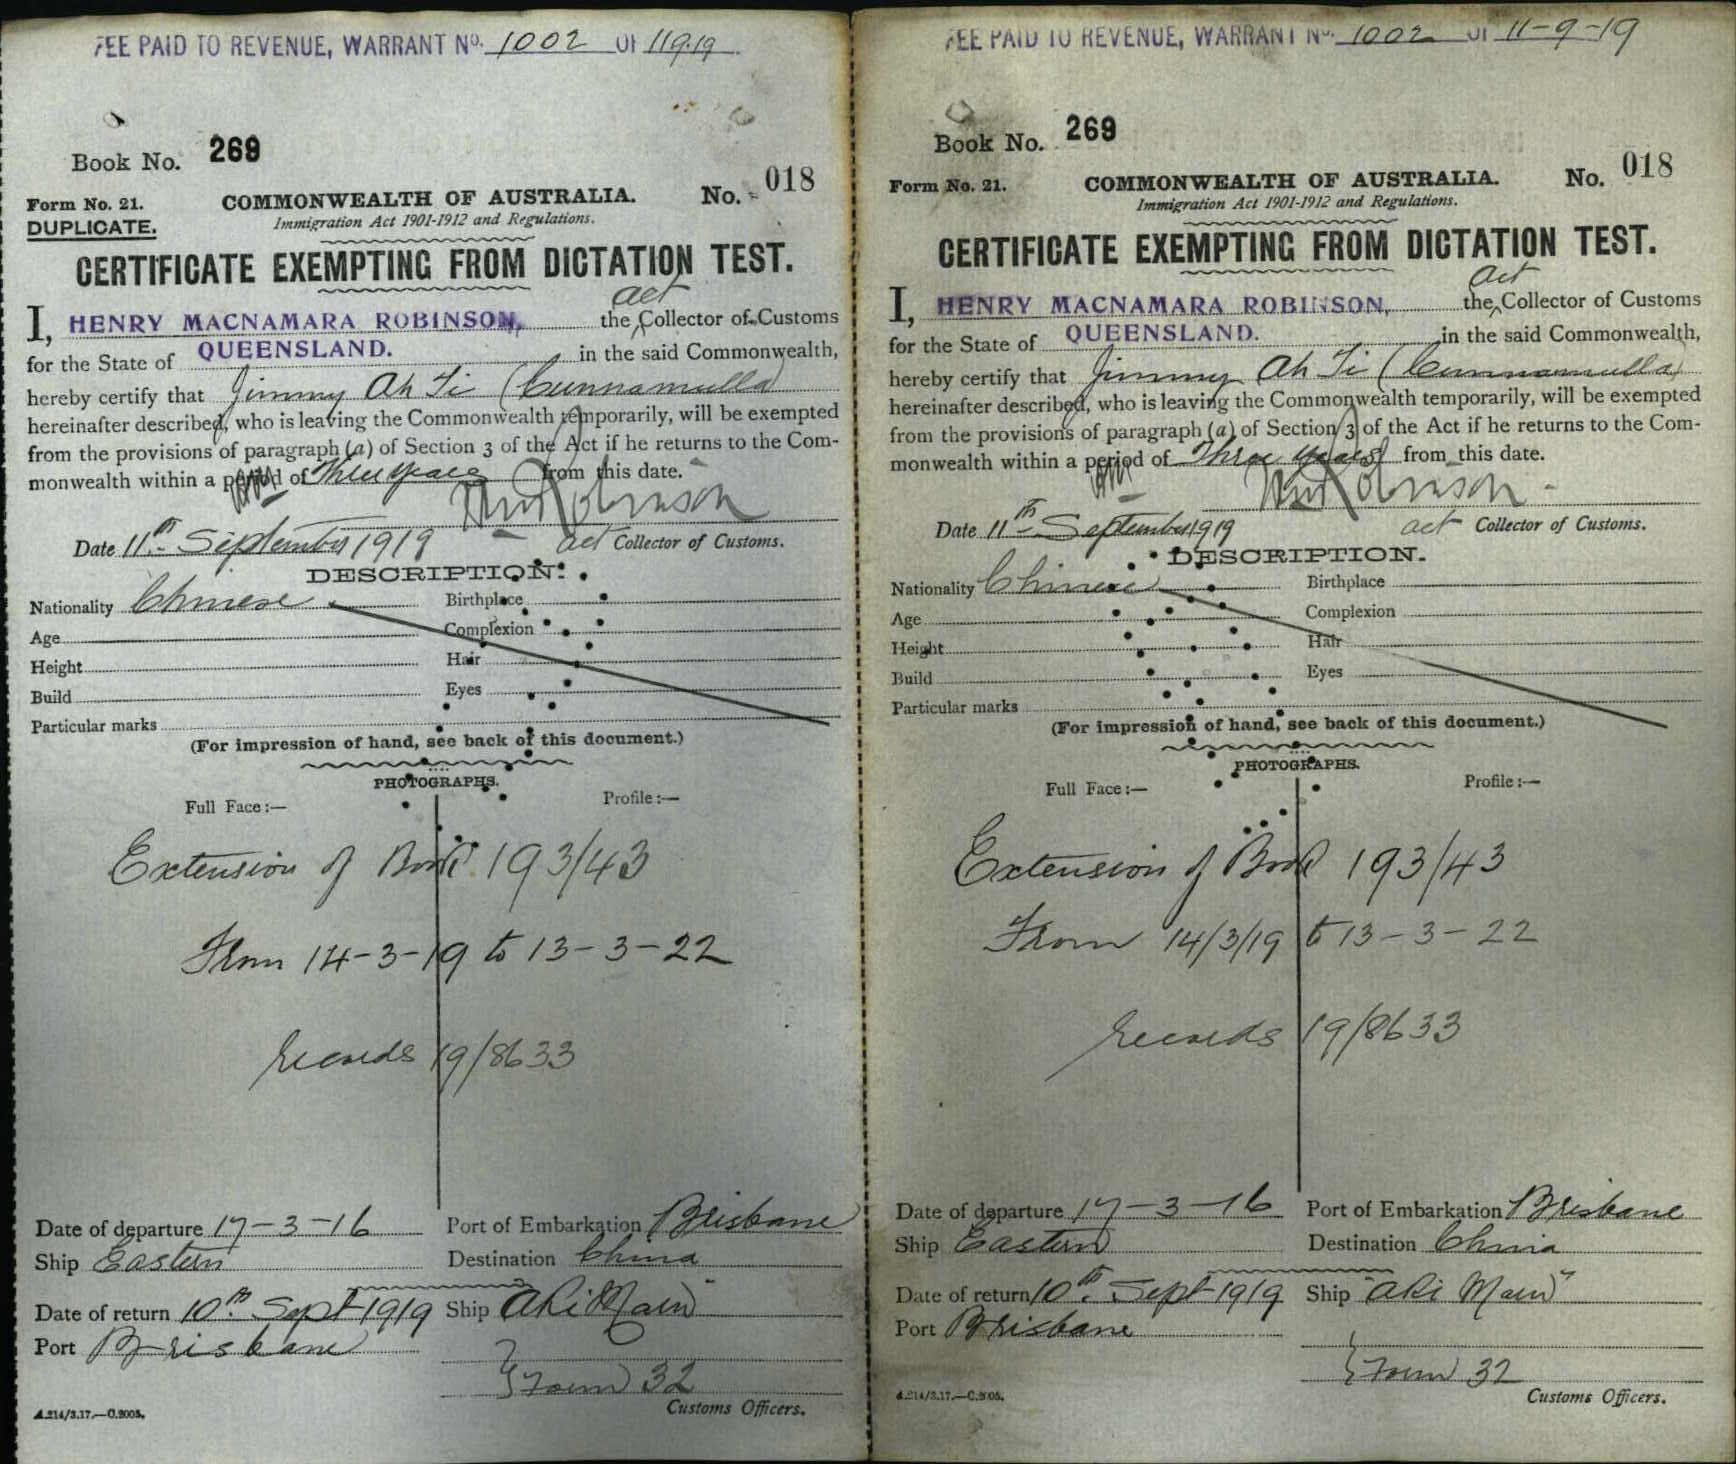 FEE PAID TO REVENUE, WARRANT No. 1002 OF 11.9.19
Book No. 269
No. 018
Form No. 21. COMMONWEALTH OF AUSTRALIA.
DUPLICATE. Immigration Act 1901-1912 and Regulations.
CERTIFICATE EXEMPTING FROM DICTATION TEST.
act
I, HENRY MACNAMARA ROBINSON, the Collector of Customs
for the State of QUEENSLAND. in the said Commonwealth,
hereby certify that Jimmy Ah Ti (Cunnamulla)
hereinafter described, who is leaving the Commonwealth temporarily, will be exempted
from the provisions of paragraph (a) of Section 3 of the Act if he returns to the Com-
monwealth within a period of Three years from this date.
Date 11th September 1919 act Collector of Customs.
DESCRIPTION.
Nationality Chinese Birthplace
Age Complexion
Height Hair
Build Eyes
Particular marks
(For impression of hand, see back of this document.)
PHOTOGRAPHS.
Full Face:— Profile:—
Extension of Book 193/43
From 14-3-19 to 13-3-22
Records 19/8633
Date of departure 17-3-16 Port of Embarkation Brisbane
Ship Eastern Destination China
Date of return 10th Sept 1919 Ship "Aki Maru"
Port Brisbane
Form 32
Customs Officers.
A.214/3.17.—C.2005.
FEE PAID TO REVENUE, WARRANT No. 1002 OF 11-9-19
Book No. 269
No. 018
Form No. 21. COMMONWEALTH OF AUSTRALIA.
Immigration Act 1901-1912 and Regulations.
CERTIFICATE EXEMPTING FROM DICTATION TEST.
act
I, HENRY MACNAMARA ROBINSON, the Collector of Customs
for the State of QUEENSLAND. in the said Commonwealth,
hereby certify that Jimmy Ah Ti (Cunnamulla)
hereinafter described, who is leaving the Commonwealth temporarily, will be exempted
from the provisions of paragraph (a) of Section 3 of the Act if he returns to the Com-
monwealth within a period of Three years from this date.
Date 11th September 1919 act Collector of Customs.
DESCRIPTION.
Nationality Chinese Birthplace
Age Complexion
Height Hair
Build Eyes
Particular marks
(For impression of hand, see back of this document.)
PHOTOGRAPHS.
Full Face:— Profile:—
Extension of Book 193/43
From 14/3/19 to 13-3-22
Records 19/8633
Date of departure 17-3-16 Port of Embarkation Brisbane
Ship Eastern Destination China
Date of return 10th Sept 1919 Ship "Aki Maru"
Port Brisbane
Form 32
A.214/3.17.—C.2005. Customs Officers.